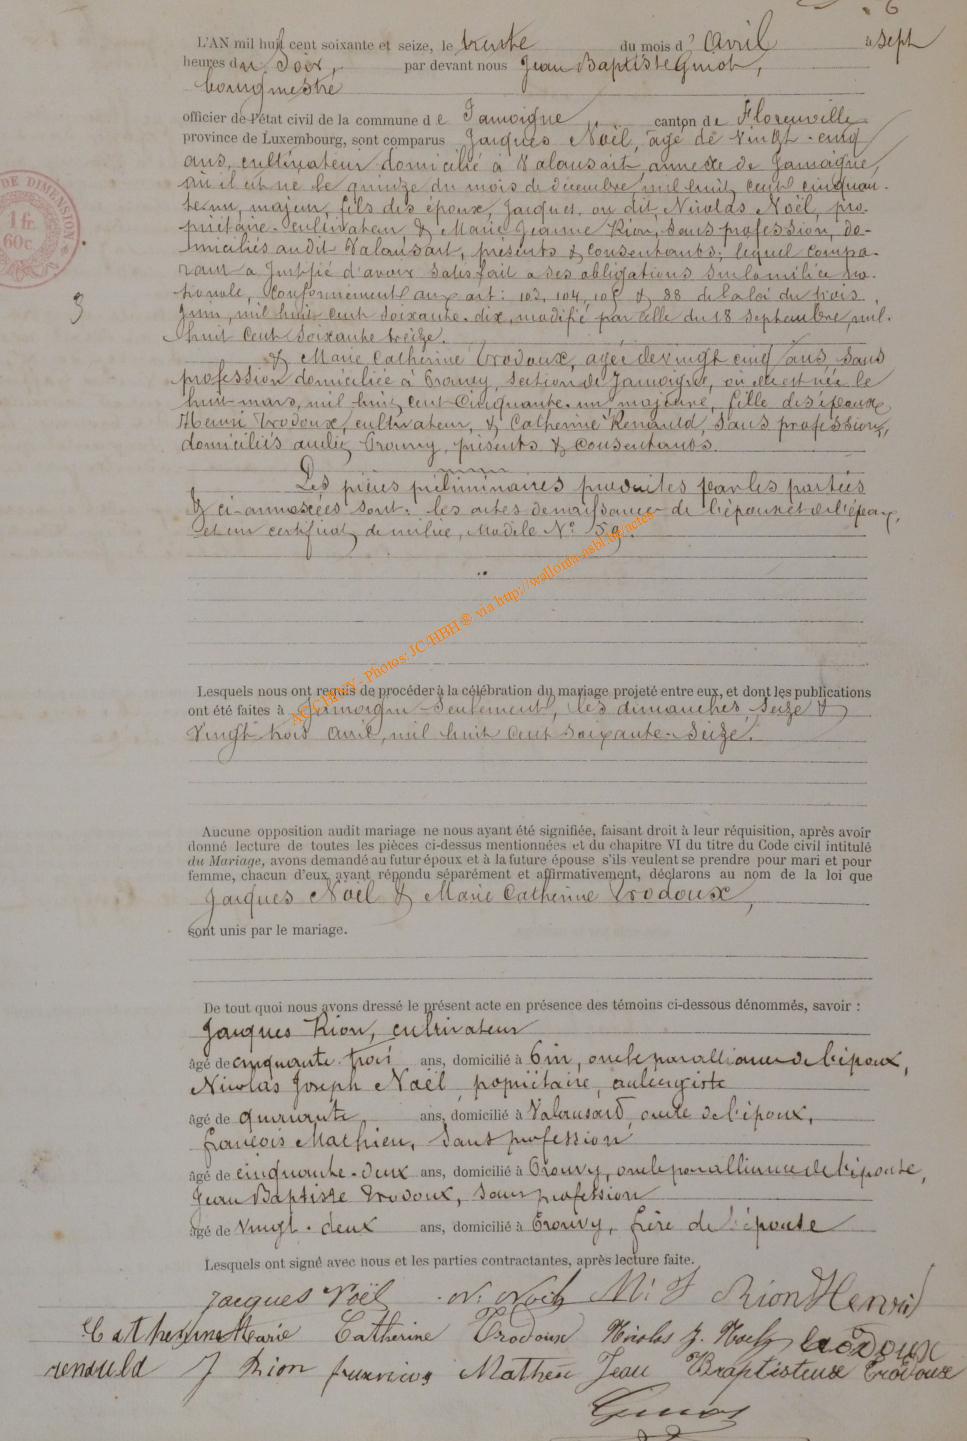 6
L'AN mil huit cent soixante et seize, le trente du mois d' Avril à sept
heures du Soir, par devant nous Jean Baptiste Guiot,
bourgmestre
officier de l'état civil de la commune de Jamoigne canton de Florenville
province de Luxembourg, sont comparus Jacques Noël, âgé de vingt-cinq
ans, cultivateur domicilié à Valansart, annexe de Jamoigne,
où il est né le quinze du mois de décembre mil huit cent cinquan-
te un, majeur, fils des époux, Jacques, ou dit Nicolas Noël, pro-
priétaire-cultivateur & Marie Jeanne Rion, sans profession, do-
miciliés audit Valansart, présents & consentants; lequel compa-
rant a justifié d'avoir satisfait à ses obligations sur la milice na-
tionale, conformément aux art: 102, 104, 105 & 88 de la loi du trois
Juin, mil huit cent soixante-dix, modifié par celle du 18 septembre, mil-
huit cent soixante treize.
3
& Marie Catherine Trodoux, agée de vingt cinq ans, sans
profession domiciliée à Prouvy, section de Jamoigne, où elle est née le
huit mars, mil huit cent cinquante-un majeure, fille des époux
Henri Trodoux, cultivateur, & Catherine Renauld, sans profession,
domiciliés audit Prouvy, présents & consentants.
Les pièces préliminaires produites par les parties
& ci-annexées sont: les actes de naissance de l'époux et de l'épouse,
et un certificat de milice, Modèle N° 59.
DE DIMENSION
1 fr.
60 c.
AC CHINY - Photos: JC-HBH @ via http://wallonia-asbl.be/actes
Lesquels nous ont requis de procéder à la célébration du mariage projeté entre eux, et dont les publications
ont été faites à Jamoigne seulement, les dimanches, seize &
vingt trois avril, mil huit cent soixante-seize.
Aucune opposition audit mariage ne nous ayant été signifiée, faisant droit à leur réquisition, après avoir
donné lecture de toutes les pièces ci-dessus mentionnées et du chapitre VI du titre du Code civil intitulé
du Mariage, avons demandé au futur époux et à la future épouse s'ils veulent se prendre pour mari et pour
femme, chacun d'eux ayant répondu séparément et affirmativement, déclarons au nom de la loi que
Jacques Noël & Marie Catherine Trodoux,
sont unis par le mariage.
De tout quoi nous avons dressé le présent acte en présence des témoins ci-dessous dénommés, savoir :
Jacques Rion, cultivateur
âgé de cinquante-trois ans, domicilié à Oin, oncle par alliance de l'époux,
Nicolas Joseph Noël, propriétaire, aubergiste
âgé de quarante, ans, domicilié à Valansart, oncle de l'époux,
François Mathieu, sans profession
âgé de cinquante-deux ans, domicilié à Prouvy, oncle par alliance de l'épouse,
Jean Baptiste Trodoux, sans profession
âgé de vingt-deux ans, domicilié à Prouvy, frère de l'épouse
Lesquels ont signé avec nous et les parties contractantes, après lecture faite.
Jacques Noël N. Noël M: J Rion Henri
Catherine Marie Catherine Trodoux Nicolas J. Noël trodoux
renauld J Rion francois Mathieu Jean Baptisteux Trodoux
Guiot